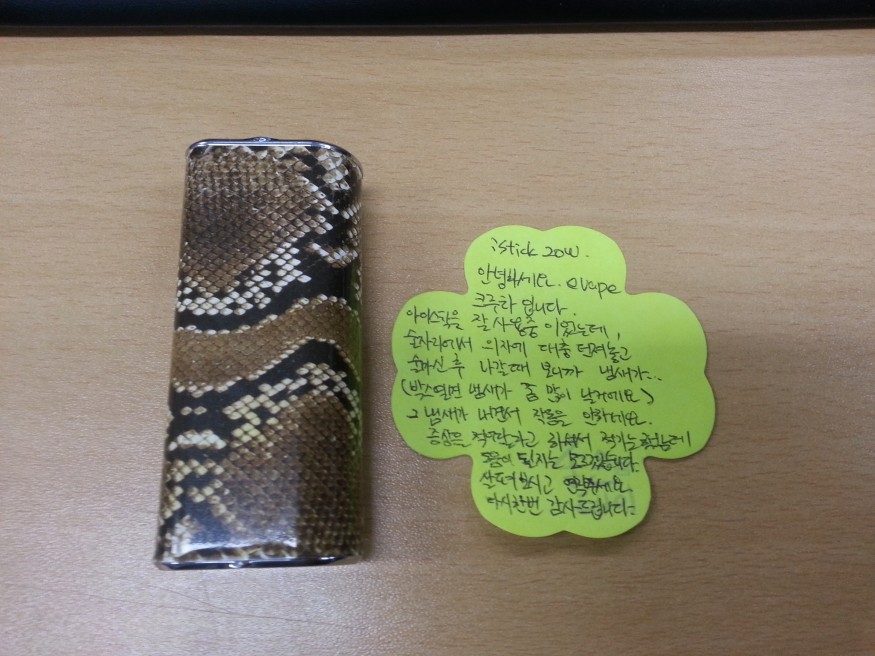 iStick 20W.
안녕하세요. evape
크루라 입니다.
아이스틱을 잘 사용중 이었는데,
술자리에서 의자에 대충 던져놓고
술마신 후 나갈때 보니까 냄새가..
(박스열면 냄새가 좀 많이 날거에요)
그 냄새가 나면서 작동을 안하네요.
증상을 적어달라고 하셔서 적기는 했는데
도움이 될지는 모르겠습니다.
보시고 연락주세요
다시한번 감사드립니다-